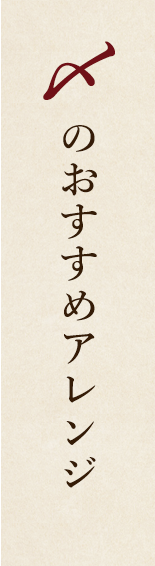 〆のおすすめアレンジ